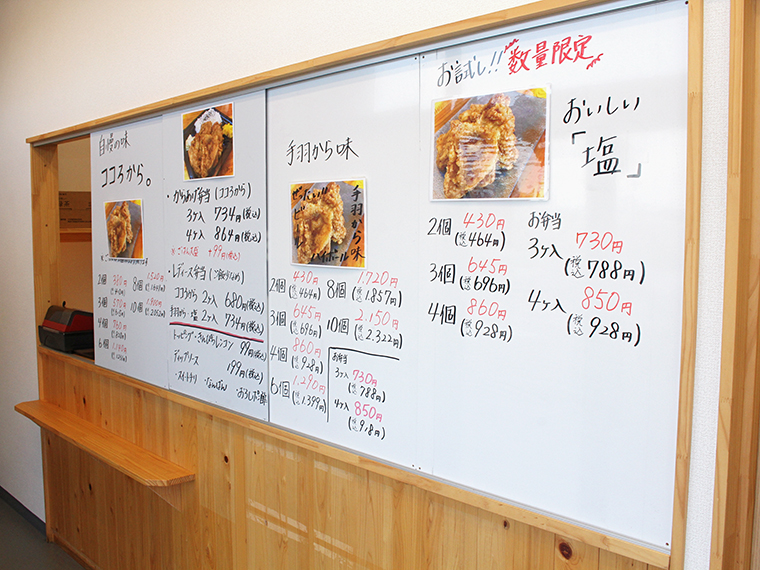 自慢の味
ココろから。
・からあげ弁当(ココろから)
3ヶ入 734円(税込)
4ヶ入 864円(税込)
+99円(税込)
・レディース弁当(ご飯少なめ)
ココろから 2ヶ入 680円(税込)
手羽から・塩 2ヶ入 734円(税込)
99円(税込)
199円(税込)
・スイートチリ ・なんばん
手羽から味
手羽から味
2個 430円
(税込464円)
3個 645円
(税込696円)
4個 860円
(税込928円)
6個 1,290円
(税込1,399円)
8個 1,720円
(税込1,857円)
10個 2,150円
(税込2,322円)
お弁当
3ヶ入 730円
(税込788円)
4ヶ入 850円
(税込918円)
お試し!! 数量限定
おいしい
「塩」
2個 430円
(税込464円)
3個 645円
(税込696円)
4個 860円
(税込928円)
お弁当
3ヶ入 730円
(税込788円)
4ヶ入 850円
(税込928円)